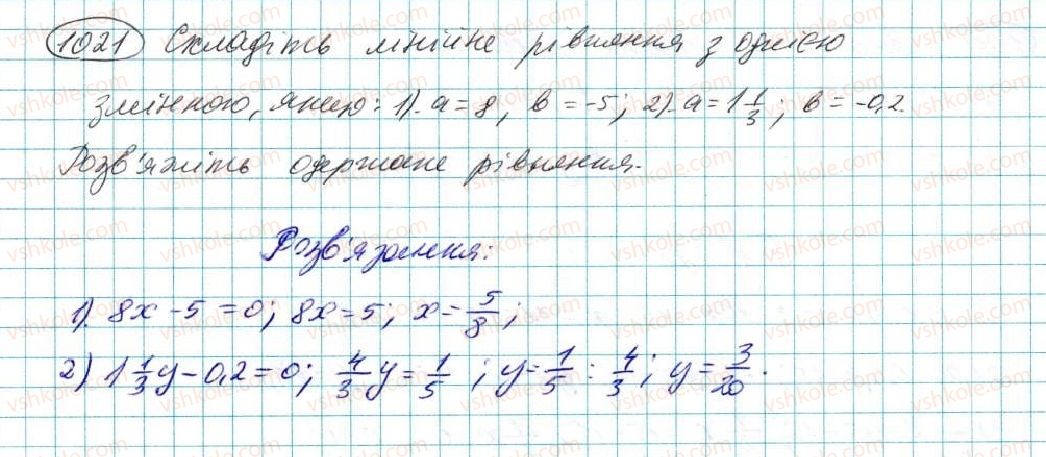 1021 Складіть лінійне рівняння з однією
змінною, якщо: 1). a = 8, b = -5; 2). a = 1 1/3; b = -0,2.
Розв'яжіть одержане рівняння.
Розв'язання:
1). 8x - 5 = 0; 8x = 5; x = 5/8;
2) 1 1/3 y - 0,2 = 0; 4/3 y = 1/5; y = 1/5 : 4/3; y = 3/20.